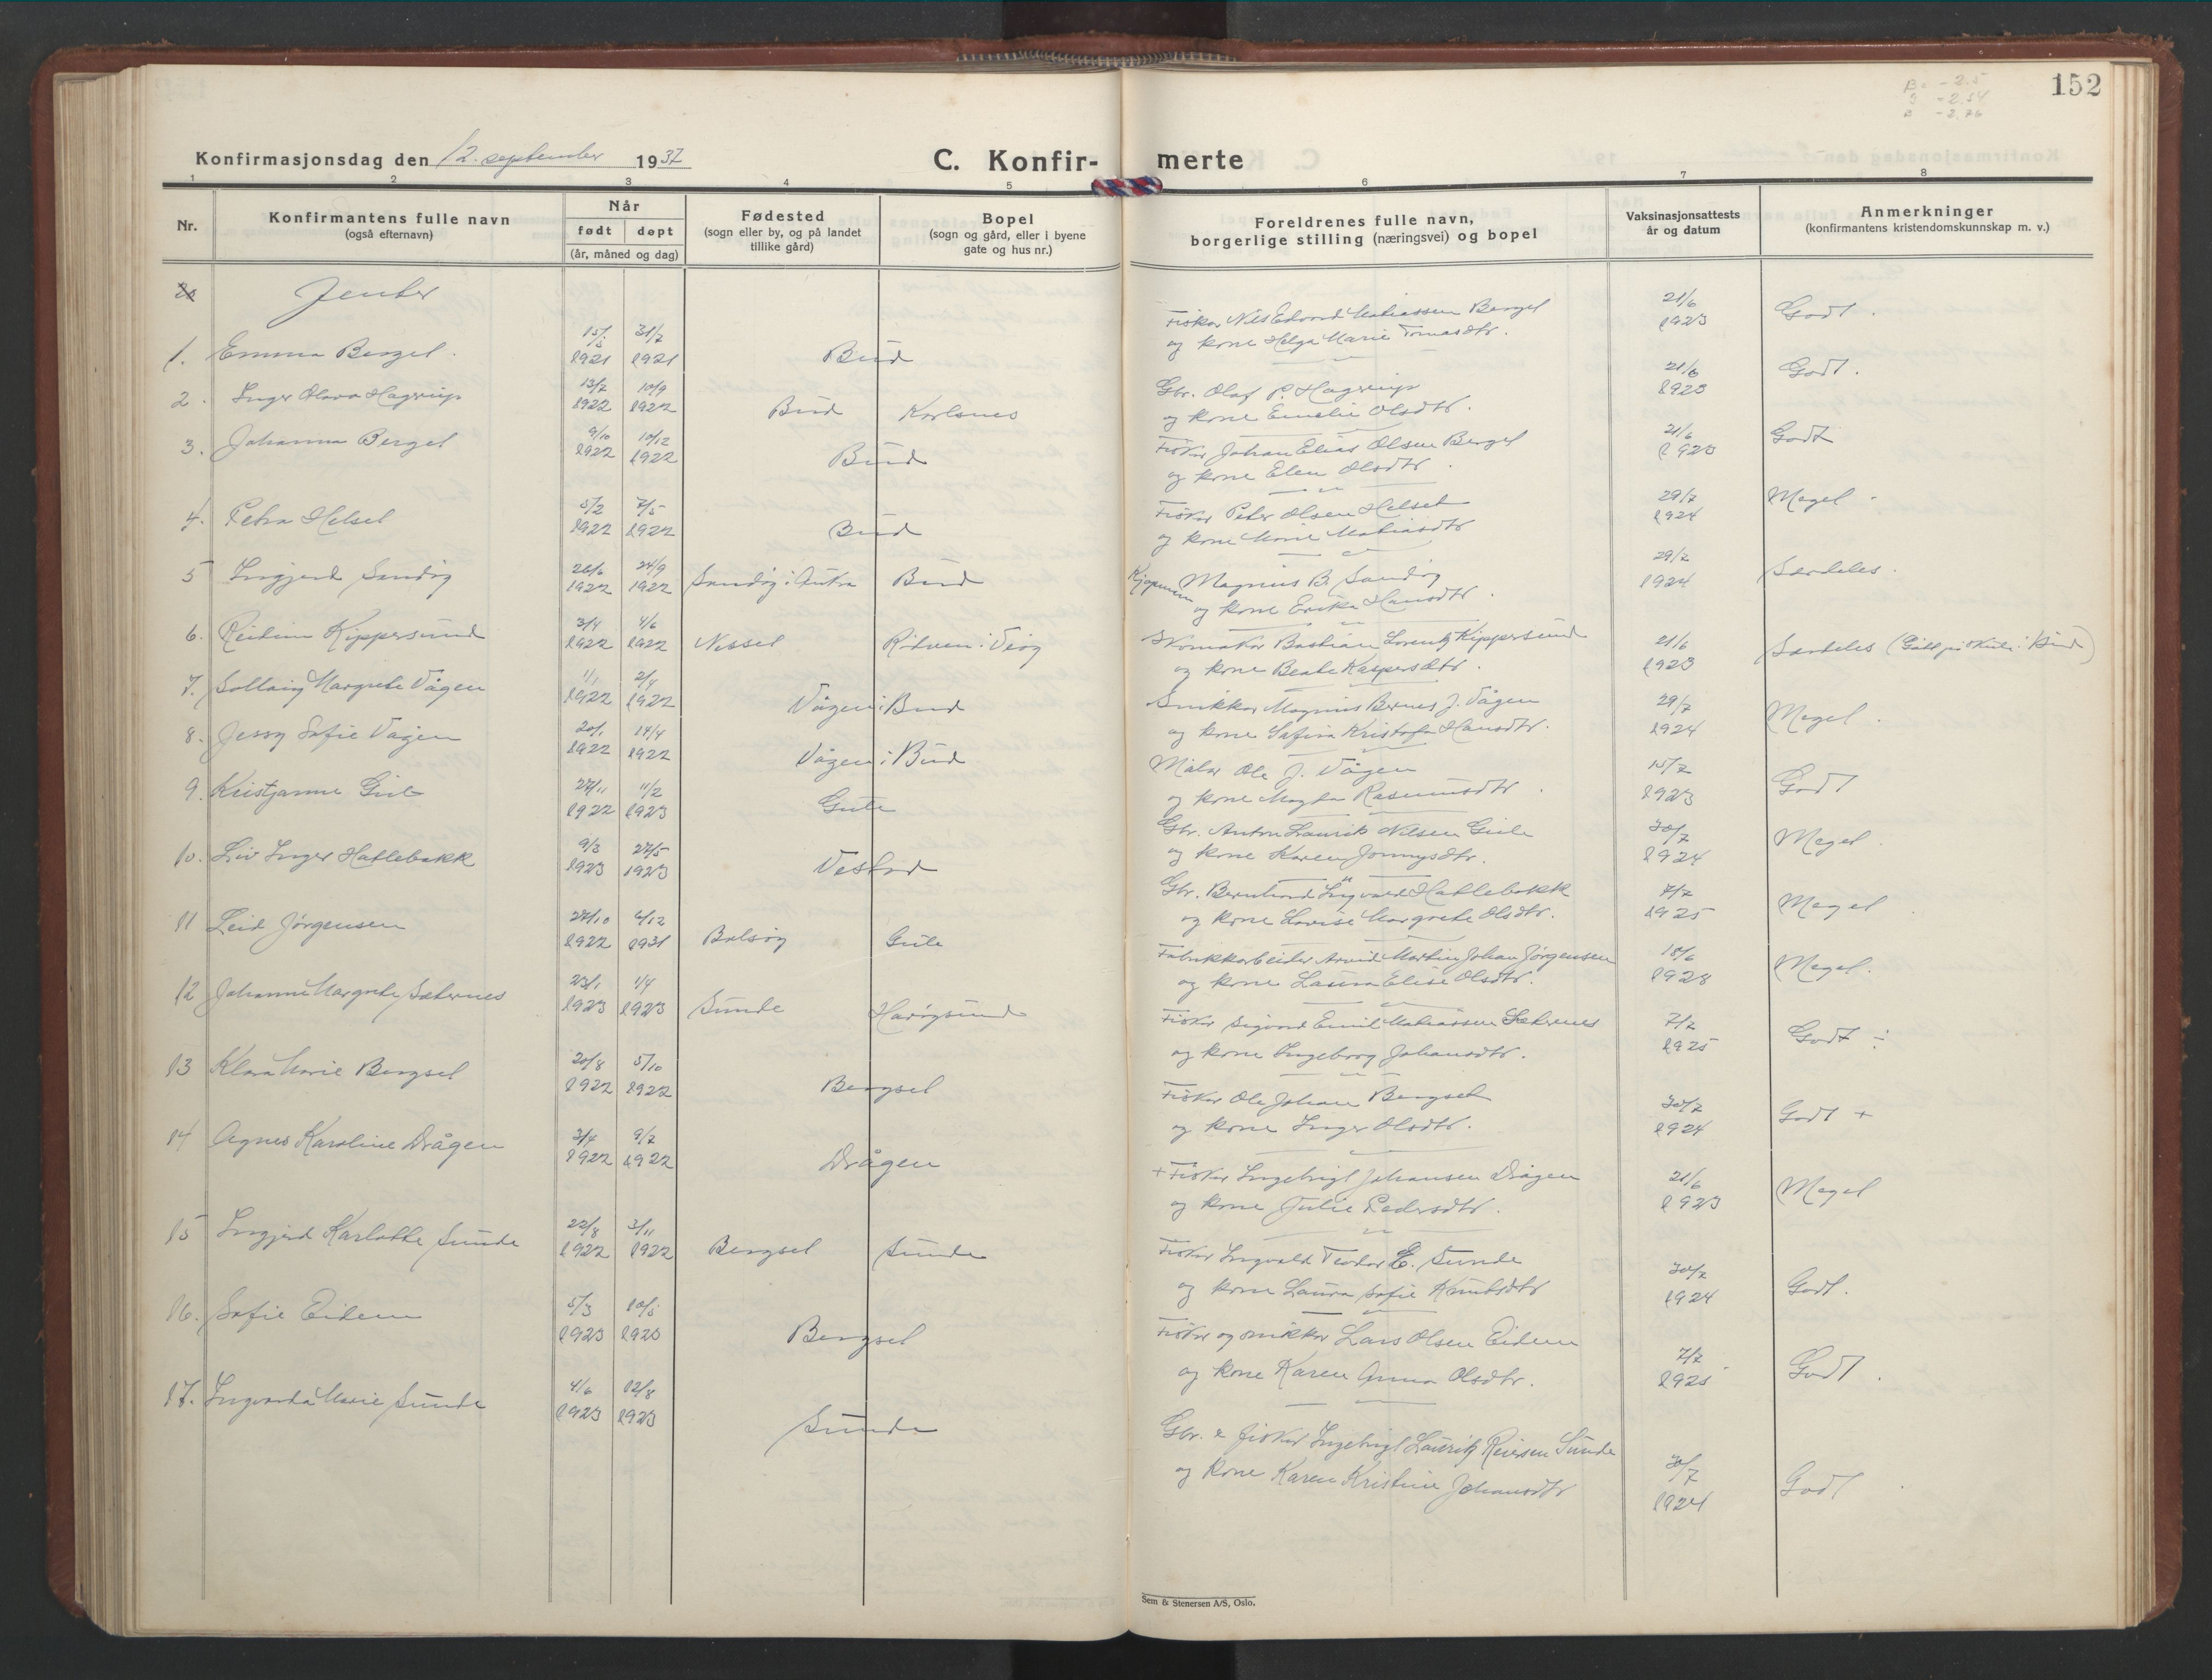 152
B. - 2.5
- 2.54
- 2.76
Konfirmasjonsdag den 12. september 1937
C. Konfir- merte
1 2 3 4 5 6 7 8
Nr.
Konfirmantens fulle navn
(også efternavn)
Når
født døpt
(år, måned og dag)
Fødested
(sogn eller by, og på landet
tillike gård)
Bopel
(sogn og gård, eller i byene
gate og hus nr.)
Foreldrenes fulle navn,
borgerlige stilling (næringsvei) og bopel
Vaksinasjonsattests
år og datum
Anmerkninger
(konfirmantens kristendomskunnskap m. v.)
Jenter
1. Emma Bergel. 1921 31/7 1921 Bud
Fisker Nils Edvard Matiassen Bergel
og kone Helga Marie Tomasdtr.
21/6 1923 Godt.
2. Inger Olava Hagerup 13/7 1922 10/9 1922 Bud Karlsnes
Gbr. Olaf P. Hagerup
og kone Emelie Olsdtr.
21/6 1923 Godt.
3. Johanna Bergel 9/10 1922 10/12 1922 Bud
Fisker Johan Elias Olsen Bergel
og kone Elen Olsdtr.
21/6 1923 Godt
4. Petra Helset 5/2 1922 7/5 1922 Bud
Fisker Peter Olsen Helset
og kone Marie Matiasdtr
29/7 1924 Meget.
5 Ingjerd Sandøy 26/6 1922 24/9 1922 Sandøy i Aukra Bud
Kjøpmann Magnus B. Sandøy
og kone Erika Hansdtr.
29/7 1924 Særdeles.
6. Reidun Kippersund 3/4 1922 4/6 1922 Nesset i Veøy
Skomaker Bastian Lorentz Kippersund
og kone Beate Kaspersdtr.
21/6 1923 Særdeles (Gått på skule i Bud)
7. Sollaug Margrete Vågen 1/1 1922 2/4 1922 Vågen i Bud
Snikker Magnus Bernes J. Vågen
og kone Safina Kristofa Hansdtr.
29/7 1924 Meget.
8. Jessy Sofie Vågen 20/1 1922 14/4 1922 Vågen i Bud
Maler Ole J. Vågen
og kone Magda Rasmusdtr.
15/7 1923 Godt
9. Kristjanne Gule 27/11 1922 11/2 1923 Gule
Gbr. Anton Laurits Nilsen Gule
og kone Karen Jonnysdtr.
30/7 1924 Meget.
10. Liv Inger Hatlebakk 9/3 1923 27/5 1923 Vestad
Gbr. Bernhard Ingvald Hatlebakk
og kone Lovise Margrete Olsdtr.
7/7 1925 Meget.
11 Leid Jørgensen 27/10 1922 6/12 1931 Bolsøy Gule
Fabrikkarbeider Arvid Martin Johan Jørgensen
og kone Laura Elise Olsdtr.
18/6 1928 Meget.
12 Johanne Margrete Sæternes 23/1 1923 1/4 1923 Sunde Harøysund
Fisker Sigvard Emil Matiassen Sæternes
og kone Ingeborg Johansdtr.
7/7 1925 Godt ÷
13 Klara Marie Bergset 20/8 1922 5/10 1922 Bergset
Fisker Ole Johan Bergset
og kone Inger Olsdtr.
30/7 1924 Godt +
14 Agnes Karoline Drågen 3/4 1922 9/7 1922 Drågen
+ Fisker Ingebrigt Johansen Drågen
og kone Julie Pedersdtr.
21/6 1923 Meget
15 Ingjerd Karlotte Sunde 22/8 1922 3/11 1922 Bergset Sunde
Fisker Ingvald Teodor E. Sunde
og kone Laura Sofie Knutsdtr
30/7 1924 Godt.
16. Sofie Eidem 5/3 1923 1923 Bergset
Fisker og snikker Lars Olsen Eidem
og kone Karen Anna Olsdtr.
7/7 1925 Godt.
17. Ingvarda Marie Sunde 4/6 1923 12/8 1923 Sunde
Gbr. & fisker Ingebrigt Laurits Reiersen Sunde
og kone Karen Kristine Johansdtr
30/7 1924 Godt
Sem & Stenersen A/S, Oslo.